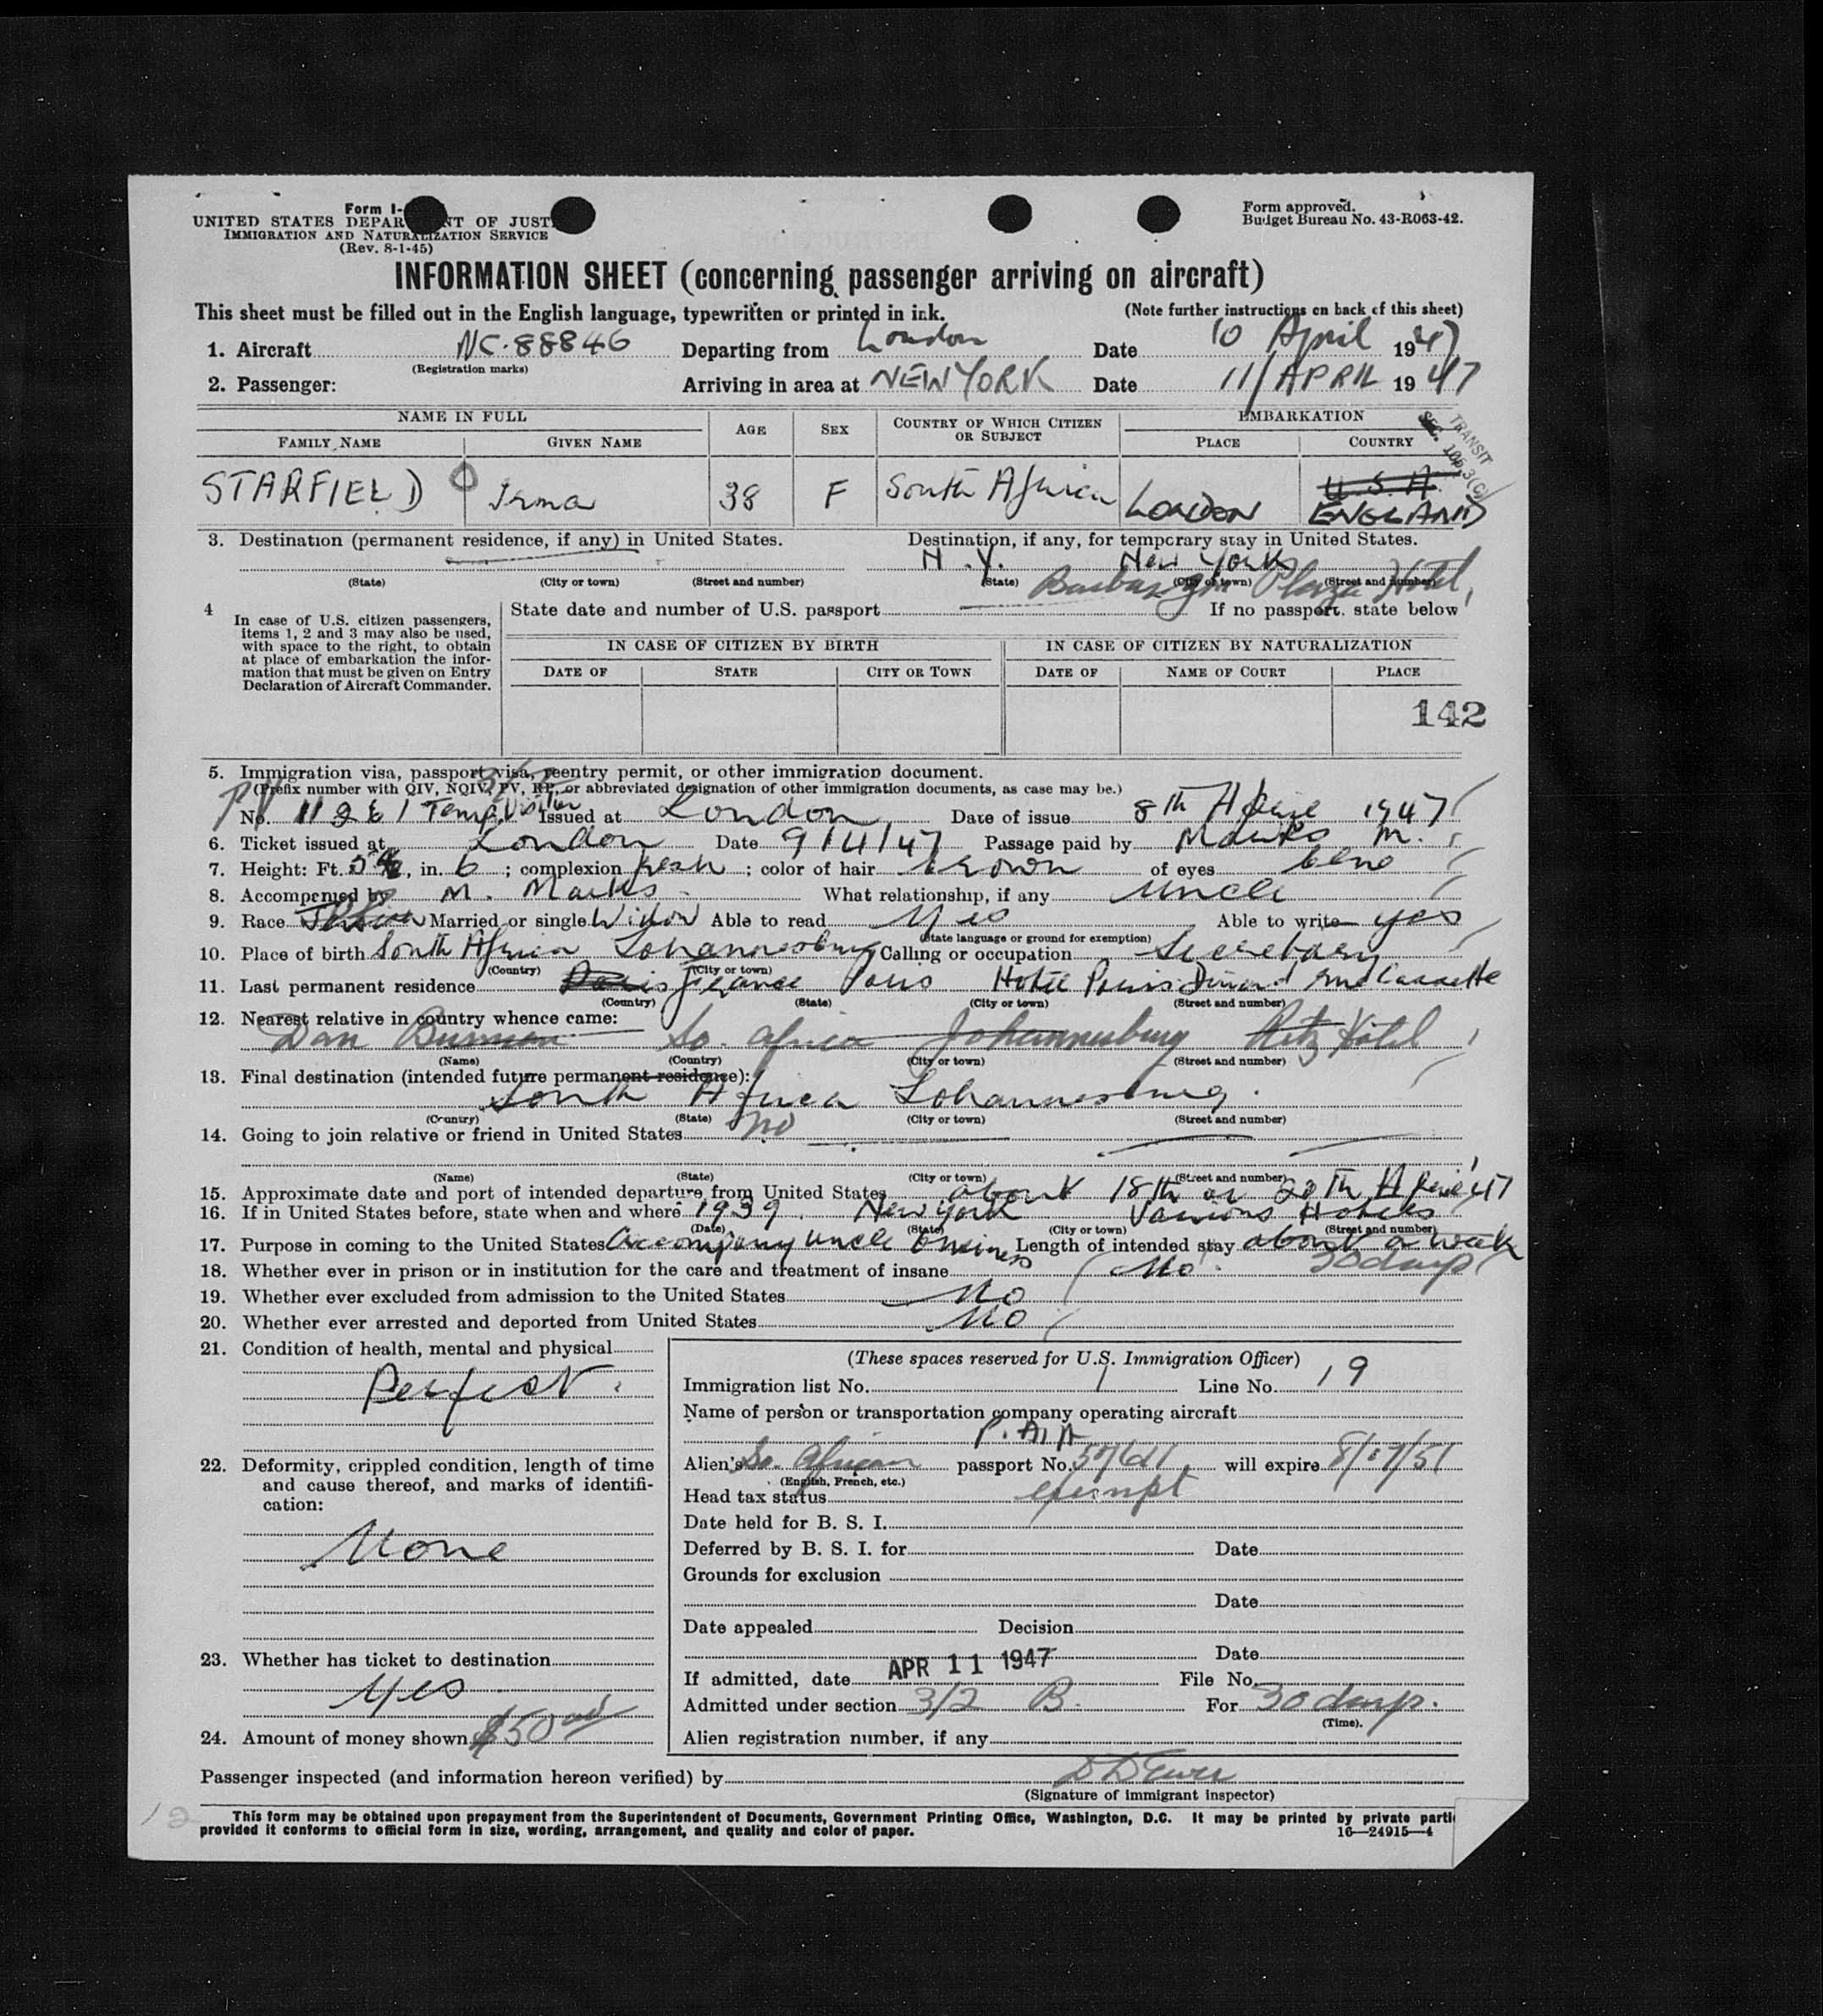 Form I-
UNITED STATES DEPAR NT OF JUST
IMMIGRATION AND NATURALIZATION SERVICE
(Rev. 8-1-45)
Form approved.
Budget Bureau No. 43-R063-42.
INFORMATION SHEET (concerning passenger arriving on aircraft)
This sheet must be filled out in the English language, typewritten or printed in ink. (Note further instructions on back of this sheet)
1. Aircraft NC-88846 Departing from London Date 10 April 1947
(Registration marks)
2. Passenger: Arriving in area at NEW YORK Date 11/APRIL 1947
NAME IN FULL AGE SEX COUNTRY OF WHICH CITIZEN OR SUBJECT EMBARKATION
FAMILY NAME GIVEN NAME PLACE COUNTRY
TRANSIT
SEC. 105.3(C)
STARFIELD Irma 38 F South Africa LONDON U.S.A. ENGLAND
3. Destination (permanent residence, if any) in United States. Destination, if any, for temporary stay in United States.
N.Y. New York
(State) (City or town) (Street and number) (State) (City or town) (Street and number)
Plaza Hotel,
4 In case of U.S. citizen passengers, items 1, 2 and 3 may also be used, with space to the right, to obtain at place of embarkation the information that must be given on Entry Declaration of Aircraft Commander.
State date and number of U.S. passport If no passport. state below
IN CASE OF CITIZEN BY BIRTH IN CASE OF CITIZEN BY NATURALIZATION
DATE OF STATE CITY OR TOWN DATE OF NAME OF COURT PLACE
142
5. Immigration visa, passport visa, reentry permit, or other immigration document.
(Prefix number with QIV, NQIV, PV, RP, or abbreviated designation of other immigration documents, as case may be.)
PV No. Temp. Visitor Issued at London Date of issue 8th April 1947
6. Ticket issued at London Date 9/4/47 Passage paid by Marks M.
7. Height: Ft. 5, in. 6; complexion fresh; color of hair brown of eyes blue
8. Accompanied by M. Marks What relationship, if any Uncle
9. Race Married or single Widow Able to read Yes Able to write yes
(State language or ground for exemption)
10. Place of birth South Africa Johannesburg Calling or occupation Secretary
(Country) (City or town)
11. Last permanent residence Paris France Paris Hotel
(Country) (State) (City or town) (Street and number)
12. Nearest relative in country whence came:
Dan So. Africa Johannesburg Ritz Hotel
(Name) (Country) (City or town) (Street and number)
13. Final destination (intended future permanent residence):
South Africa Johannesburg.
(Country) (State) (City or town) (Street and number)
14. Going to join relative or friend in United States no
(Name) (State) (City or town) (Street and number)
15. Approximate date and port of intended departure from United States about 18th or 20th April 47
16. If in United States before, state when and where 1939. New York Various Hotels
(Date) (State) (City or town) (Street and number)
17. Purpose in coming to the United States Accompany uncle business Length of intended stay about a week
30 days
18. Whether ever in prison or in institution for the care and treatment of insane No.
19. Whether ever excluded from admission to the United States No
20. Whether ever arrested and deported from United States No
21. Condition of health, mental and physical
Perfect.
22. Deformity, crippled condition, length of time and cause thereof, and marks of identification:
None
23. Whether has ticket to destination
Yes
24. Amount of money shown $50
(These spaces reserved for U.S. Immigration Officer)
Immigration list No. 1 Line No. 19
Name of person or transportation company operating aircraft
P.A.A
Alien's So. African passport No. will expire 8/17/51
(English, French, etc.)
Head tax status exempt
Date held for B. S. I.
Deferred by B. S. I. for Date
Grounds for exclusion
Date
Date appealed Decision
Date
If admitted, date APR 11 1947 File No.
Admitted under section 3/2 B. For 30 days.
(Time).
Alien registration number, if any
Passenger inspected (and information hereon verified) by
(Signature of immigrant inspector)
12
This form may be obtained upon prepayment from the Superintendent of Documents, Government Printing Office, Washington, D.C. It may be printed by private parti
provided it conforms to official form in size, wording, arrangement, and quality and color of paper.
16—24915—4